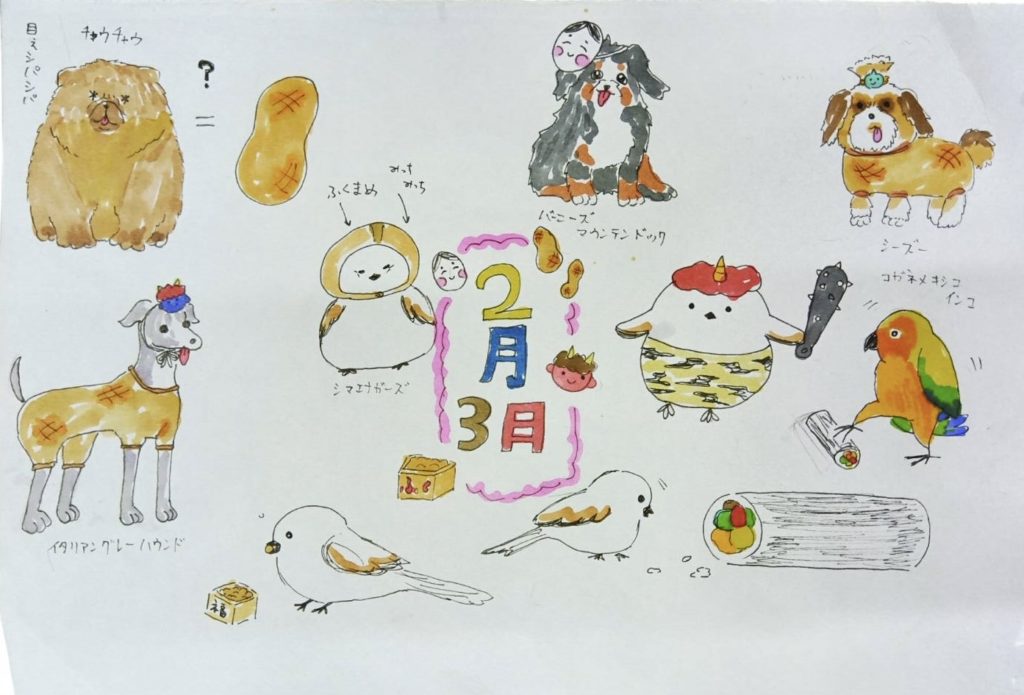 目ぇシパシパ
チャウチャウ
?
=
ふくまめ
みっち
みっち
バーニーズ
マウンテンドック
シーズー
2
月
3月
シマエナガーズ
コガネメキシコ
インコ
ふく
イタリアングレーハウンド
福